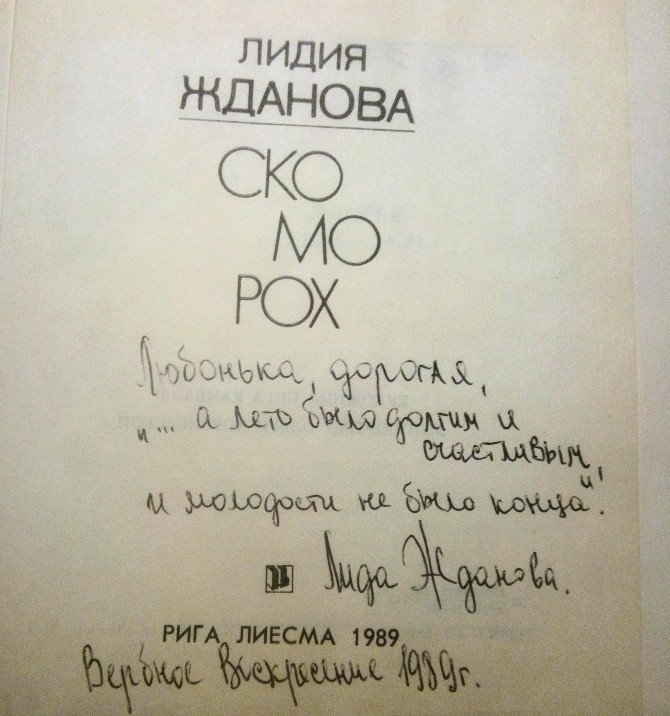 ЛИДИЯ
ЖДАНОВА
СКО
МО
РОХ
Любонька, дорогая,
„... а лето было долгим и
счастливым,
и молодости не было конца".
Лида Жданова.
РИГА ЛИЕСМА 1989
Вербное Воскресение 1989г.